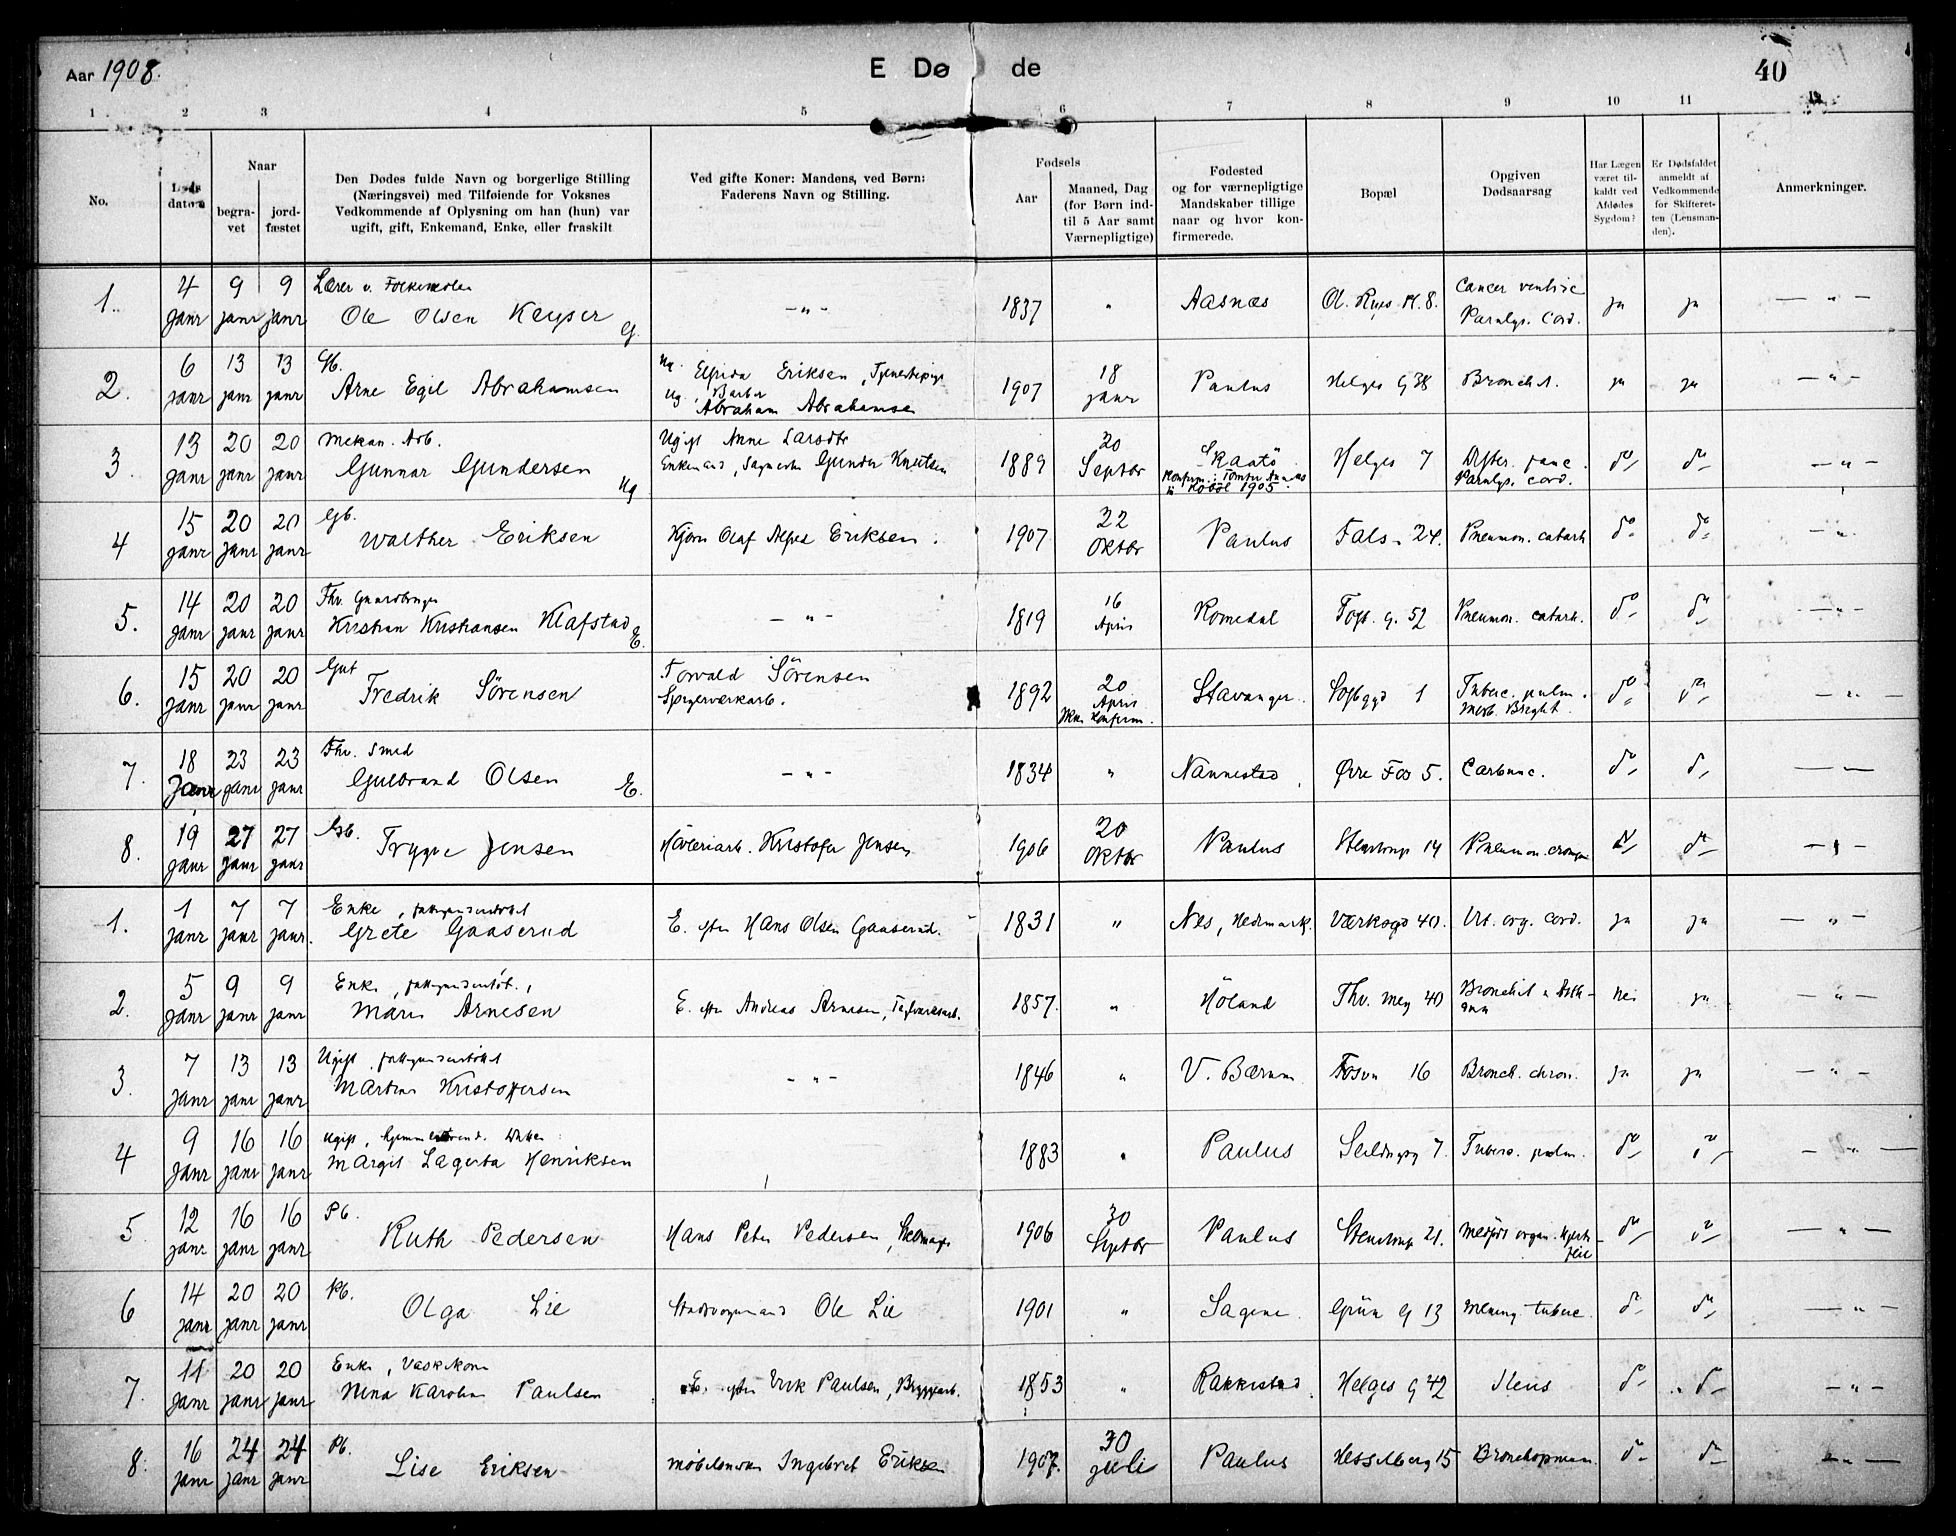 Aar 1908.
E Dø de
40
1 2 3 4 5 6 7 8 9 10 11 12
No.
Døds
datum
Naar
begra-
vet
jord-
fæstet
Den Dødes fulde Navn og borgerlige Stilling
(Næringsvei) med Tilføiende for Voksnes
Vedkommende af Oplysning om han (hun) var
ugift, gift, Enkemand, Enke, eller fraskilt
Ved gifte Koner: Mandens, ved Børn:
Faderens Navn og Stilling.
Fødsels
Aar
Maaned, Dag
(for Børn ind-
til 5 Aar samt
Værnepligtige)
Fødested
og for værnepligtige
Mandskaber tillige
naar og hvor kon-
firmerede.
Bopæl
Opgiven
Dødsaarsag
Har Lægen
været til-
kaldt ved
Afdødes
Sygdom?
Er Dødsfaldet
anmeldt af
Vedkommende
for Skifteret-
ten (Lensman-
den).
Anmerkninger.
1. 4 9 9 Lærer v. Folkeskolen
Janr Janr Janr Ole Olsen Keyser G. - " - 1837 " Aasnæs Ol. Ryes Pl. 8. Cancer ventric
Paralys. Cord. ja ja — " —
2. 6 13 13 Gb. Ug. Elfrida Eriksen,
janr janr janr Arne Egil Abrahamsen Ug., Barber
Abraham Abrahamsen 1907 18
janr Paulus Helges G 38 Bronchit. ja ja — " —
3. 13 20 20 Mekan. Arb.
janr janr janr Gunnar Gundersen Ug Ugift Anne Larsdtr
Enkemand, Gunder Knutsen 1889 20
Septbr Skaatö
Konfirm. i
1905. Helges 7 Paralys. cord. do do — " —
4 15 20 20 Gb.
janr janr janr Walther Eriksen Kjörer Olaf Alfred Eriksen. 1907 22
Oktbr Paulus Fals. 24. Pneumon. catarrh do do — " —
5. 14 20 20 Fhv. Gaardbruger
janr janr janr Kristian Kristiansen Klafstad E. — " — 1819 16
April Romedal Toft. g. 52 Pneumon. catarrh. do do — " —
6. 15 20 20 Gut
janr janr janr Fredrik Sörensen Torvald Sörensen
Spigerverkarb. 1892 20
April
Ikke konfirm. Stavanger. 1 Tuberc. pulm.
Morb. Bright. do do — " —
7. 18 23 23 Fhv. Smed
Janr janr janr Gulbrand Olsen E. — " — 1834 " Nannestad Øvre Fos 5. Carbunc. do do — " —
8. 19 27 27 Gb.
janr janr janr Trygve Jensen Kristofer Jensen 1906 20
Oktbr Paulus Stenstrup 14 Pneumon. do — " —
1. 1 7 7 Enke, fattigunderstöttet
janr janr janr. Grete Gaaserud E. efter Hans Olsen Gaaserud. 1831 " Nes, Hedmark. Værksgd 40. Vit. org. cord. ja ja — " —
2. 5 9 9 Enke, fattigunderstöt.,
janr janr janr Maren Arnesen E. efter Andreas Arnesen, Teglværksarb. 1857. " Höland Thv. Mey 40 Bronchit & Asth-
ma nei ja — " —
3. 7 13 13 Ugift, fattigunderstöttet
janr janr janr Martine Kristoffersen — " — 1846 " V. Bærum Fosvn 16 Bronch. chron. ja ja — " —
4 9 16 16 Ugift, hjemmeværende Datter
janr janr janr Margit Lagerta Henriksen 1883 " Paulus Seildugsg 7. Tuberc. pulm. do do — " —
5 12 16 16 Pb.
janr janr janr Ruth Pedersen Hans Peter Pedersen, 1906 30
Septbr Paulus Stenstrup 21. Medfödt organ. Hjerte-
feil do do — " —
6 14 20 20 Pb.
janr janr janr Olga Lie Ole Lie 1901 " Sagene. Grün. G 13 Mening. tuberc. do do — " —
7. 11 20 20 Enke, Vaskekone
janr janr janr Nina Karoline Paulsen E. efter Erik Paulsen, Bryggearb. 1853 " Rakkestad Helges G 42 Ileus do do — " —
8. 16 24 24 Pb.
janr janr janr Lise Eriksen Ingebret Eriksen 1907. 30
juli Paulus Hesselberg 15 Bronchopneum. do do — " —